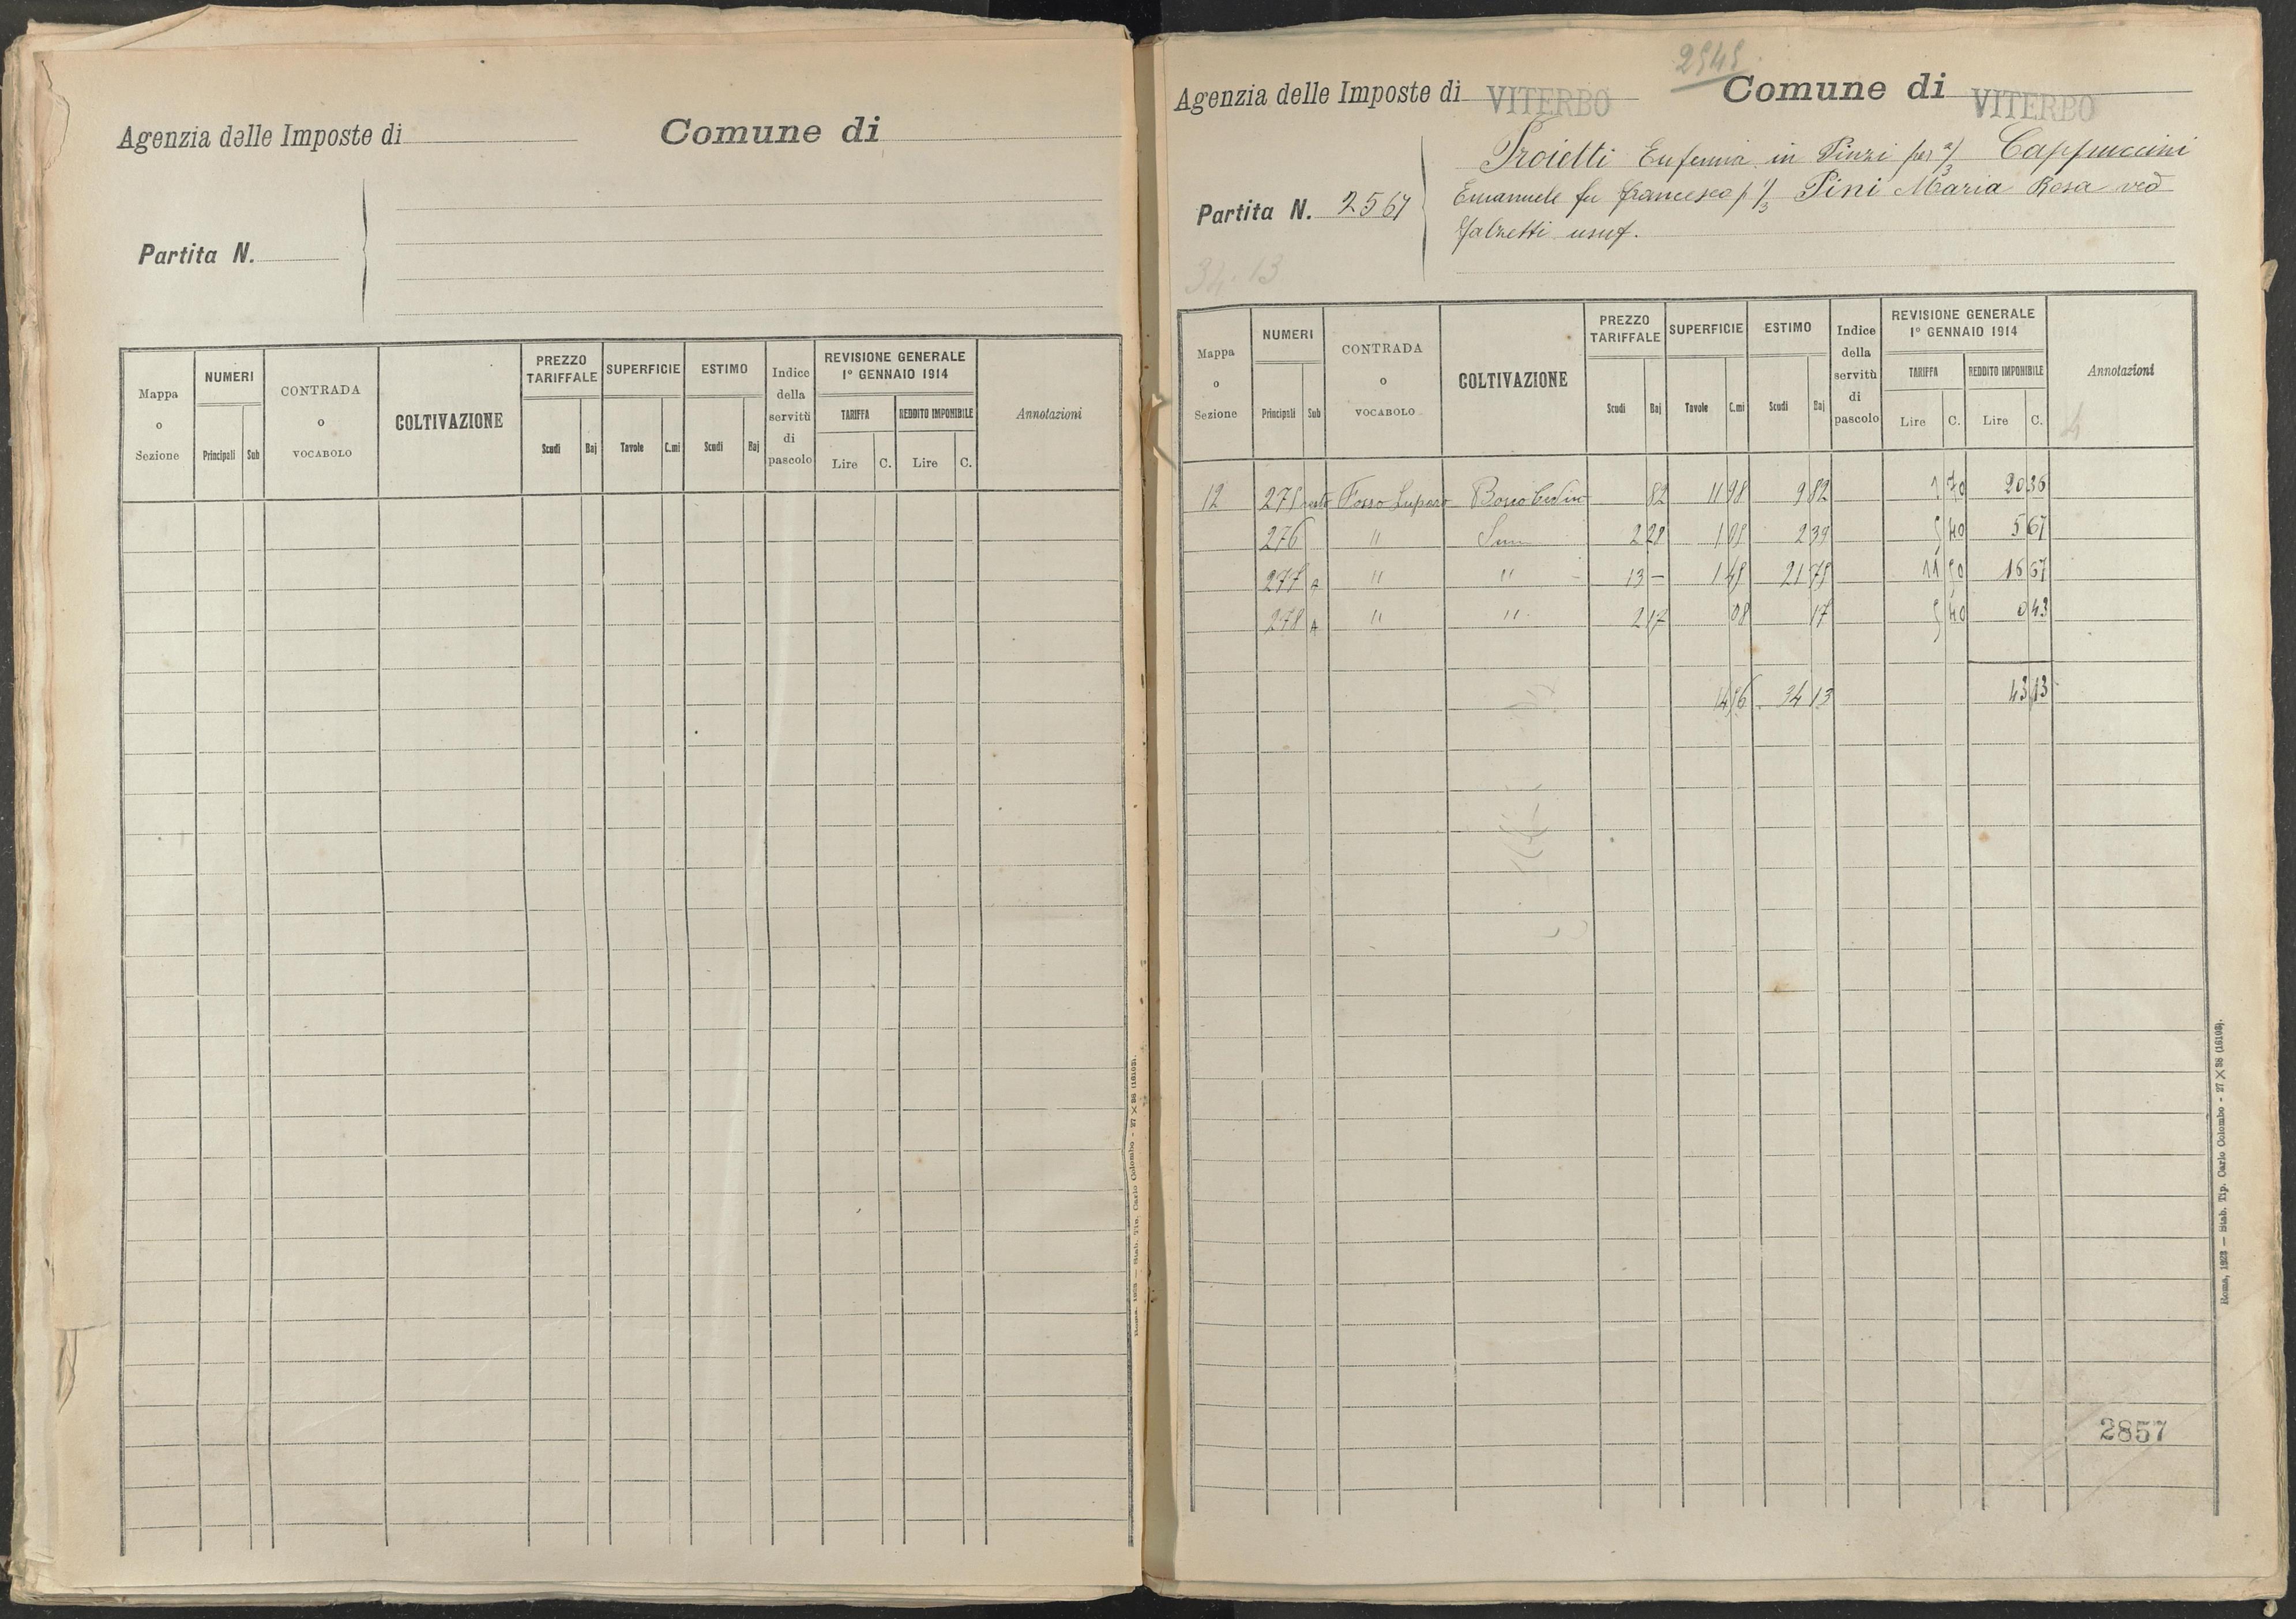 Agenzia delle Imposte di Comune di
Partita N.
Mappa o Sezione NUMERI Principali Sub CONTRADA o VOCABOLO COLTIVAZIONE PREZZO TARIFFALE Scudi Baj SUPERFICIE Tavole C.mi ESTIMO Scudi Baj Indice della servitù di pascolo REVISIONE GENERALE 1º GENNAIO 1914 TARIFFA Lire C. REDDITO IMPONIBILE Lire C. Annotazioni
Roma, 1923 — Stab. Tip. Carlo Colombo - 27 X 38 (16193).
2545
Agenzia delle Imposte di VITERBO Comune di VITERBO
Proietti Eufemia in Pinzi per 2/3 Cappuccini
Partita N. 2567 Emanuele fu Francesco p 1/3 Pini Maria Rosa ved
Falzetti usuf.
34.13
Mappa o Sezione NUMERI Principali Sub CONTRADA o VOCABOLO COLTIVAZIONE PREZZO TARIFFALE Scudi Baj SUPERFICIE Tavole C.mi ESTIMO Scudi Baj Indice della servitù di pascolo REVISIONE GENERALE 1º GENNAIO 1914 TARIFFA Lire C. REDDITO IMPONIBILE Lire C. Annotazioni
4
12 275 Fosso Luparo Bosco 82 11 98 9 82 1 70 20 36
276 " Sem 2 28 1 05 2 39 5 40 5 67
277 A " " 13 – 1 45 21 75 11 50 16 67
278 A " " 2 17 08 17 5 40 0 43
14 56 34 13 43 13
2857
Roma, 1923 — Stab. Tip. Carlo Colombo - 27 X 38 (16193).